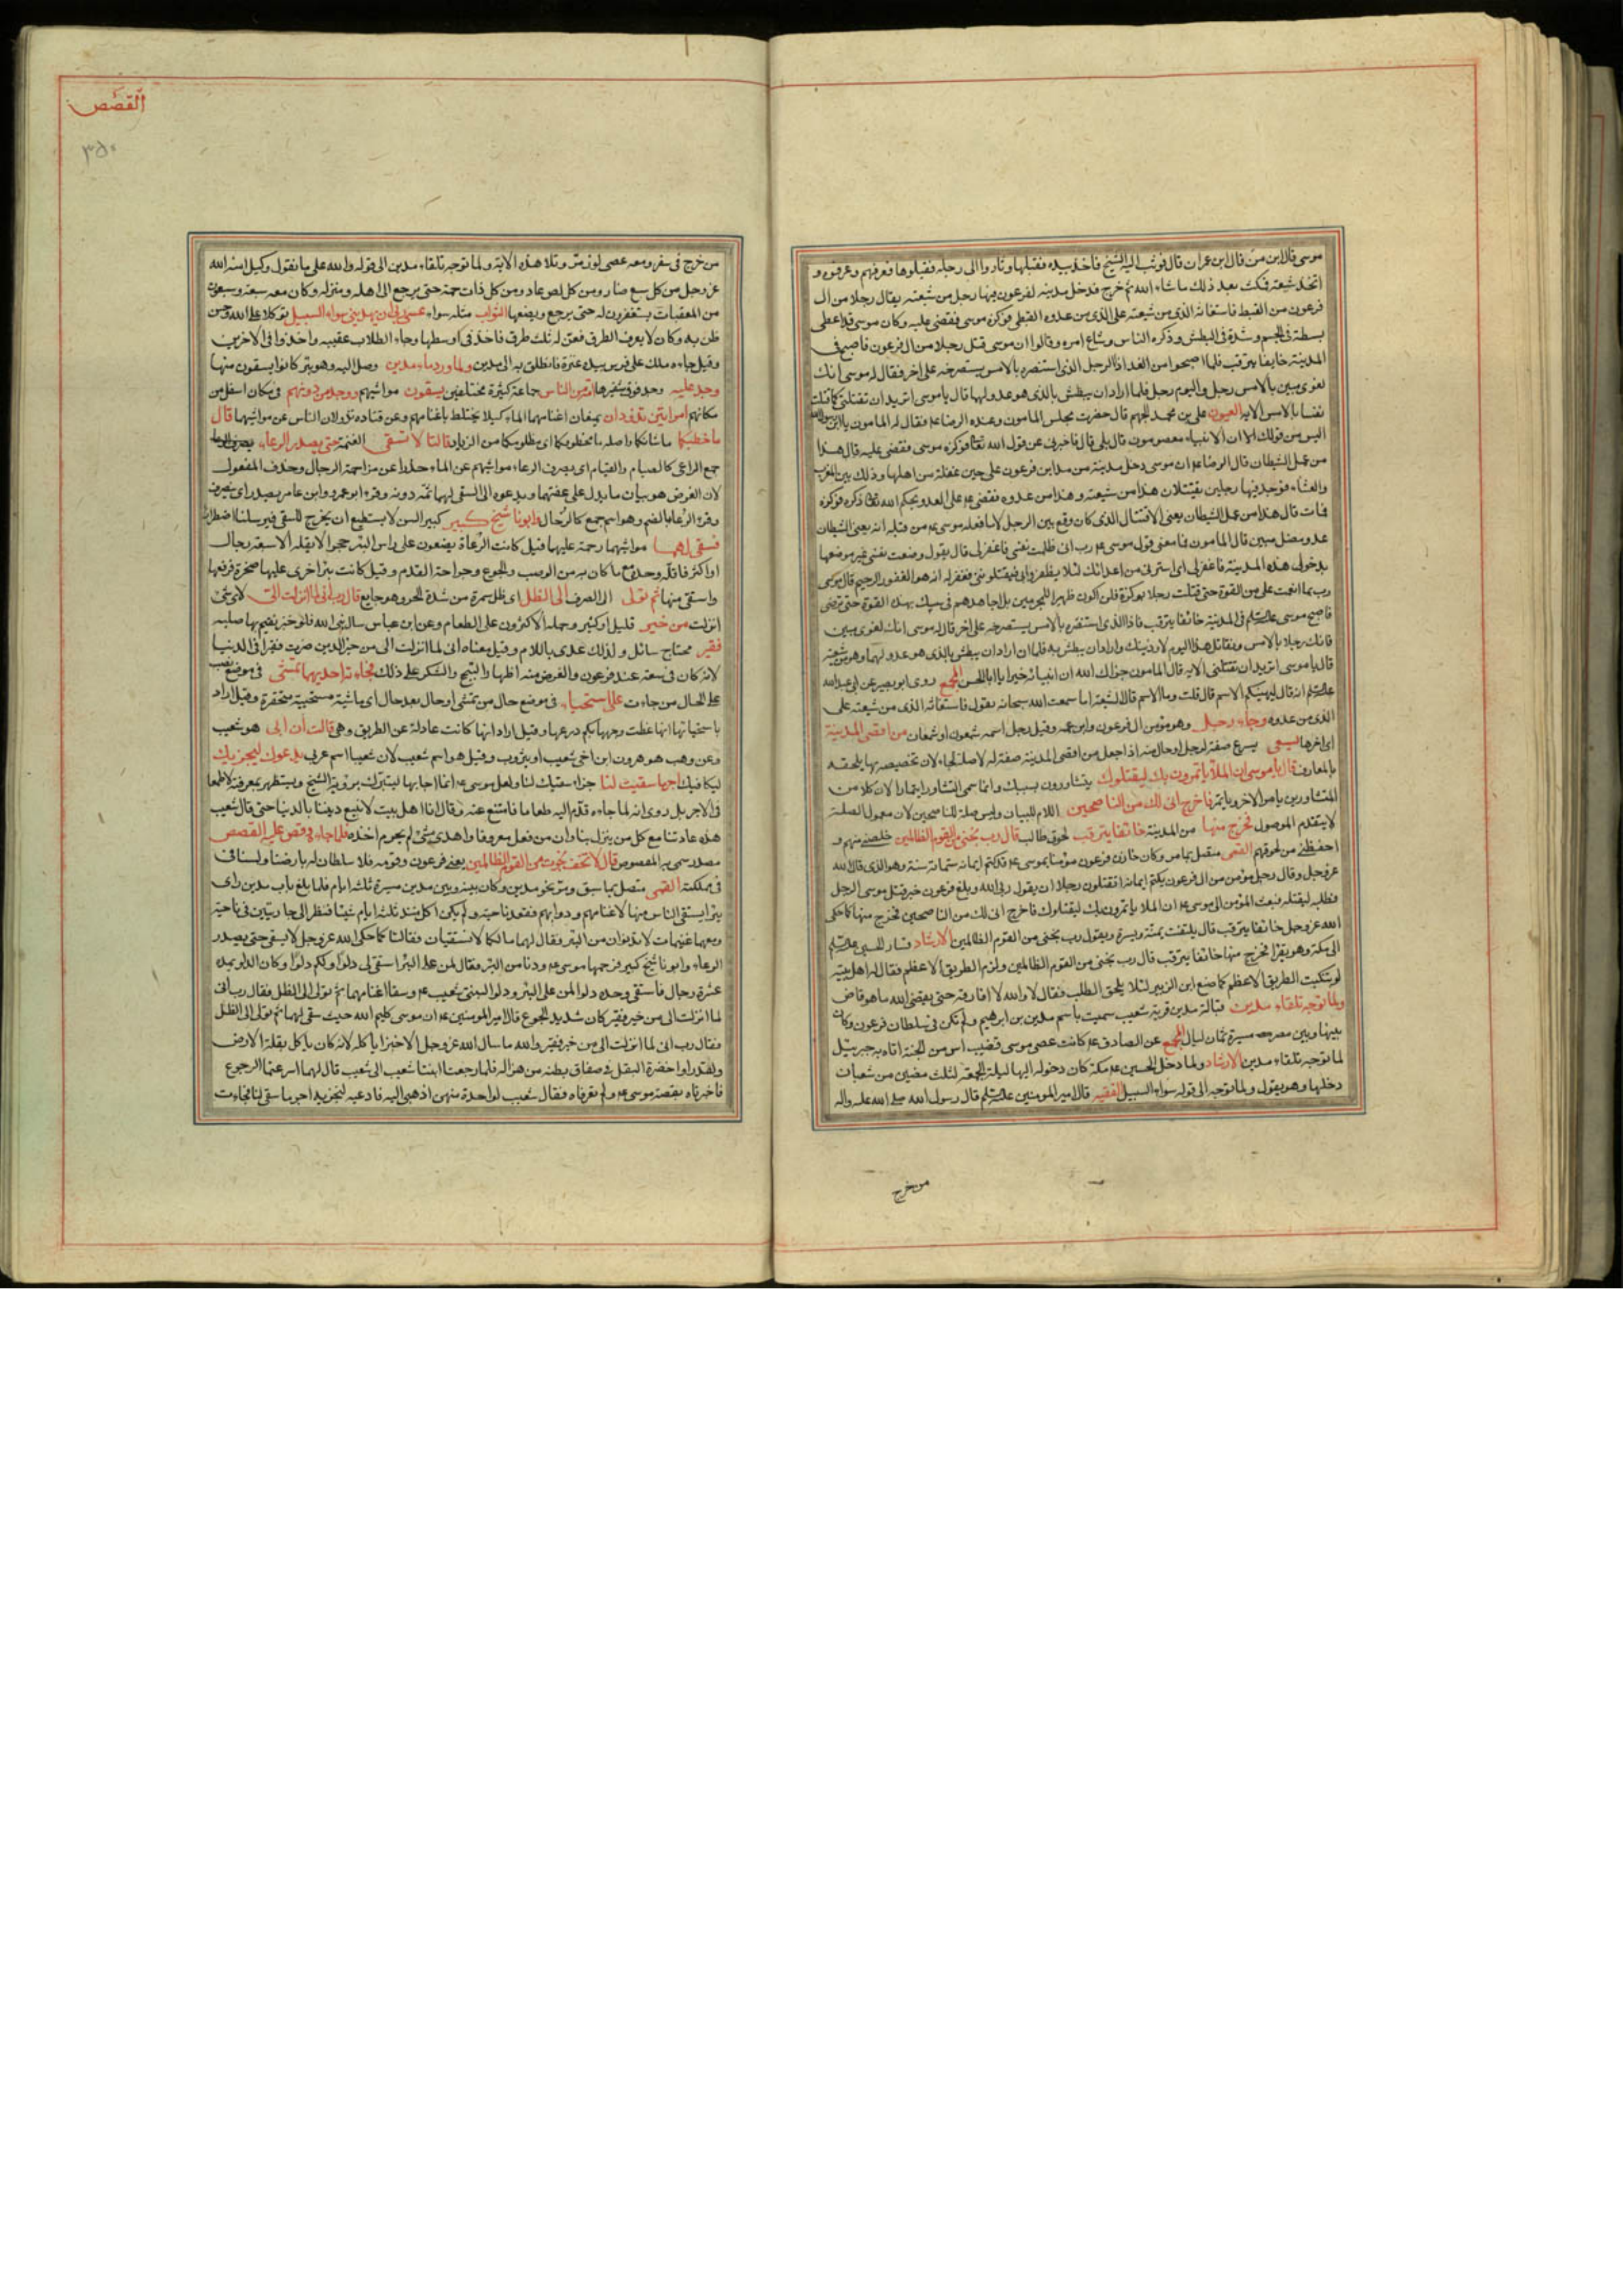 موسى قال ابن من قال ابن عمران قال فوثب اليه الشيخ فاخذ بيده فقبلها وثاروا الى رجله فقبلوها فعرفهم وعرفوه و
اتخذ شيعة فمكث بعد ذلك ما شاء الله ثم خرج فدخل مدينة لفرعون فيها رجل من شيعته يقاتل رجلا من ال
فرعون من القبط فاستغاثه الذى من شيعته على الذى من عدوه القبطى فوكزه موسى فقضى عليه وكان موسى قد اعطى
بسطة فى الجسم وشدة فى البطش وذكره الناس وشاع امره وقالوا ان موسى قتل رجلا من ال فرعون فاصبح فى
المدينة خايفا يترقب فلما اصبحوا من الغد اذا الرجل الذى استنصره بالامس يستصرخه على اخر فقال له موسى انك
لغوى مبين بالامس رجل واليوم رجل فلما اراد ان يبطش بالذى هو عدو لهما قال يا موسى اتريد ان تقتلنى كما قتلت
نفسا بالامس الاية العيون على بن محمد الجهم قال حضرت مجلس المامون وعنده الرضا ع فقال له المامون يا ابن رسول الله
اليس من قولك الا ان الانبياء معصومون قال بلى قال فاخبرنى عن قول الله تعالى فوكزه موسى فقضى عليه قال هذا
من عمل الشيطان قال الرضا ع ان موسى دخل مدينة من مداين فرعون على حين غفلة من اهلها وذلك بين المغرب
والعشاء فوجد فيها رجلين يقتتلان هذا من شيعته وهذا من عدوه فقضى ع على العدو بحكم الله تعالى ذكره فوكزه
فمات قال هذا من عمل الشيطان يعنى الاقتتال الذى كان وقع بين الرجلين لا ما فعله موسى ع من قتله انه يعنى الشيطان
عدو مضل مبين قال المامون فما معنى قول موسى ع رب انى ظلمت نفسى فاغفر لى قال يقول وضعت نفسى غير موضعها
بدخولى هذه المدينة فاغفر لى اى استرنى من اعدائك لئلا يظفروا بى فيقتلونى فغفر له انه هو الغفور الرحيم قال موسى
رب بما انعمت على من القوة حتى قتلت رجلا بوكزة فلن اكون ظهيرا للمجرمين بل اجاهدهم فى سبيلك بهذه القوة حتى ترضى
فاصبح موسى عليه السلام فى المدينة خائفا يترقب فاذا الذى استنصره بالامس يستصرخه على اخر قال له موسى انك لغوى مبين
قاتلت رجلا بالامس وتقاتل هذا اليوم لاوذينك واراد ان يبطش به فلما ان اراد ان يبطش بالذى هو عدو لهما وهو من شيعته
قال يا موسى اتريد ان تقتلنى الاية قال المامون جزاك الله ان انبيائه خيرا يا ابا الحسن المجمع روى ابو بصير عن ابى عبد الله
عليه السلام انه قال ليهنيكم الاسم قال قلت وما الاسم قال الشيعة اما سمعت الله سبحانه يقول فاستغاثه الذى من شيعته على
الذى من عدوه وجاء رجل وهو مؤمن ال فرعون وابن عمه وقيل رجل اسمه شمعون او شمعان من اقصى المدينة
اى اخرها يسعى يسرع صفة لرجل او حال منه اذا جعل من اقصى المدينة صفة له لا صلة لجاء لان تخصيصه بها يلحقه
بالمعارف قال يا موسى ان الملأ ياتمرون بك ليقتلوك يتشاورون بسببك وانما سمى التشاور ايتمارا لان كلا من
المتشاورين يامر الاخر وياتمر فاخرج انى لك من الناصحين اللام للبيان وليس صلة للناصحين لان معمول الصلة
لا يتقدم الموصول فخرج منها من المدينة خائفا يترقب لحوق طالب قال رب نجنى من القوم الظالمين خلصنى منهم و
احفظنى من لحوقهم القمى متصل بما مر وكان خازن فرعون مؤمنا بموسى ع قد كتم ايمانه ستمائة سنة وهو الذى قال الله
عز وجل وقال رجل مؤمن من ال فرعون يكتم ايمانه اتقتلون رجلا ان يقول ربى الله وبلغ فرعون خبر قتل موسى الرجل
فطلبه ليقتله فبعث المؤمن الى موسى ع ان الملا ياتمرون بك ليقتلوك فاخرج انى لك من الناصحين فخرج منها كما حكى
الله عز وجل خائفا يترقب قال يلتفت يمنة ويسرة ويقول رب نجنى من القوم الظالمين الارشاد فسار الحسين عليه السلم
الى مكة وهو يقرا فخرج منها خائفا يترقب قال رب نجنى من القوم الظالمين ولزم الطريق الاعظم فقال له اهل بيته
لو تنكبت الطريق الاعظم كما صنع ابن الزبير لئلا يلحق الطلب فقال لا والله لا افارقه حتى يقضى الله ما هو قاض
ولما توجه تلقاء مدين قبالة مدين قرية شعيب سميت باسم مدين بن ابرهيم ولم تكن فى سلطان فرعون وكان
بينها وبين مصر مسيرة ثمان ليال المجمع عن الصادق ع كانت عصى موسى قضيب اس من الجنة اتاه به جبرئيل
لما توجه تلقاء مدين الارشاد ولما دخل الحسين ع مكة كان دخوله اليها ليلة الجمعة لثلث مضين من شعبان
دخلها وهو يقول ولما توجه الى قوله سواء السبيل الفقيه قال امير المومنين عليه السلم قال رسول الله صلى الله عليه واله
من خرج
القصص
٣٥٠
من خرج فى سفر ومعه عصى لوز مر وتلا هذه الاية ولما توجه تلقاء مدين الى قوله والله على ما نقول وكيل امنه الله
عز وجل من كل سبع ضار ومن كل لص عاد ومن كل ذات حمة حتى يرجع الى اهله ومنزله وكان معه سبعة وسبعون
من المعقبات يستغفرون له حتى يرجع ويضعها الثواب مثله سواء عسى ربى ان يهدينى سواء السبيل توكلا على الله وحسن
ظن به وكان لا يعرف الطرق فعن له ثلث طرق فاخذ فى اوسطها وجاء الطلاب عقيبه واخذوا فى الاخريين
وقيل جاءه ملك على فرس بيده عنزة فانطلق به الى مدين ولما ورد ماء مدين وصل اليه وهو بئر كانوا يسقون منها
وجد عليه وجد فوق شفيرها امة من الناس جماعة كثيرة مختلفين يسقون مواشيهم ووجد من دونهم فى مكان اسفل من
مكانهم امراتين تذودان تمنعان اغنامهما الماء كيلا يختلط باغنامهم وعن قتاده تذودان الناس عن مواشيهما قال
ما خطبكما ما شانكما واصله ما مخطوبكما اى مطلوبكما من الزياد قالتا لا نسقى الغنمة حتى يصدر الرعاء يصرف الرعاء
جمع الراعى كالصيام والقيام اى يصرف الرعاء مواشيهم عن الماء حذرا عن مزاحمة الرجال وحذف المفعول
لان الغرض هو بيان ما يدل على عفتهما ويدعوه الى السقى لهما ثمة دونه وقرء ابو عمرو وابن عامر يصدر اى ينصرف
وقرء الرعا بالضم وهو اسم جمع كالرخال وابونا شيخ كبير كبير السن لا يستطيع ان يخرج للسقى فيرسلنا اضطرارا
فسقى لهما مواشيهما رحمة عليهما قيل كانت الرعاة يضعون على راس البئر حجرا لا يقله الا سبعة رجال
او اكثر فاقله وحده مع ما كان به من الوصب والجوع وجراحة القدم وقيل كانت بئر اخرى عليها صخرة فرفعها
واستقى منها ثم تولى انصرف الى الظل اى ظل سمرة من شدة الحر وهو جايع قال رب انى لما انزلت الى لاى شئ
انزلت من خير قليل او كثير وحمله الاكثرون على الطعام وعن ابن عباس سال نبى الله فلق خبز يقيم بها صلبه
فقير محتاج سائل ولذلك عدى باللام وقيل معناه انى لما انزلت الى من خير الدين صرت فقيرا فى الدنيا
لانه كان فى سعة عند فرعون والغرض منه اظهار التبجح والشكر على ذلك فجاءته احديهما تمشى فى موضع نصب
على الحال من جاءت على استحياء فى موضع حال من تمشى او حال بعد حال اى ماشية مستحيية متخفرة وقيل اراد
باستحيائها انها غطت وجهها بكم درعها وقيل اراد انها كانت عادلة عن الطريق وهى قالت ان ابى هو شعيب
وعن وهب هو هرون ابن اخى شعيب او يثروب وقيل هو اسم شعيب لان شعيبا اسم عربى يدعوك ليجزيك
ليكافيك اجر ما سقيت لنا جزاء سقيك لنا ولعل موسى ع انما اجابها ليتبرك برؤية الشيخ ويستظهر بمعرفته لا طمعا
فى الاجر بل روى انه لما جاءه قدم اليه طعاما فامتنع عنه وقال انا اهل بيت لا نبيع ديننا بالدنيا حتى قال شعيب
هذه عادتنا مع كل من ينزل بنا وان من فعل معروفا واهدى شئ لم يحرم اخذه فلما جاءه وقص عليه القصص
مصدر سمى به المقصوص قال لا تخف نجوت من القوم الظالمين يعنى فرعون وقومه فلا سلطان له بارضنا ولسنا فى
مملكته القمى متصل بما سبق ومر نحو مدين وكان بينه وبين مدين مسيرة ثلثة ايام فلما بلغ باب مدين راى
بئرا يستقى الناس منها لاغنامهم ودوابهم فقعد ناحية ولم يكن اكل منذ ثلثة ايام شيئا فنظر الى جاريتين فى ناحية
ومعهما غنيمات لا تدنوان من البئر فقال لهما ما لكما لا تستقيان فقالتا كما حكى الله عز وجل لا نسقى حتى يصدر
الرعاء وابونا شيخ كبير فرحمهما موسى ع ودنا من البئر فقال لمن على البئر استقى لى دلوا ولكم دلوا وكان الدلو يمده
عشرة رجال فاستقى وحده دلوا لمن على البئر ودلوا لبنتى شعيب ع وسقا اغنامهما ثم تولى الى الظل فقال رب انى
لما انزلت الى من خير فقير كان شديد الجوع قال امير المومنين ع ان موسى كليم الله حيث سقى لهما ثم تولى الى الظل
فقال رب انى لما انزلت الى من خير فقير والله ما سال الله عز وجل الا خبزا ياكله لانه كان ياكل بقلة الارض
ولقد راوا خضرة البقل فى صفاق بطنه من هزاله فلما رجعتا ابنتا شعيب الى شعيب قال لهما اسرعتما الرجوع
فاخبرتاه بقصة موسى ع ولم تعرفاه فقال شعيب لواحدة منهن اذهبى اليه فادعيه لنجزيه اجر ما سقى لنا فجاءت